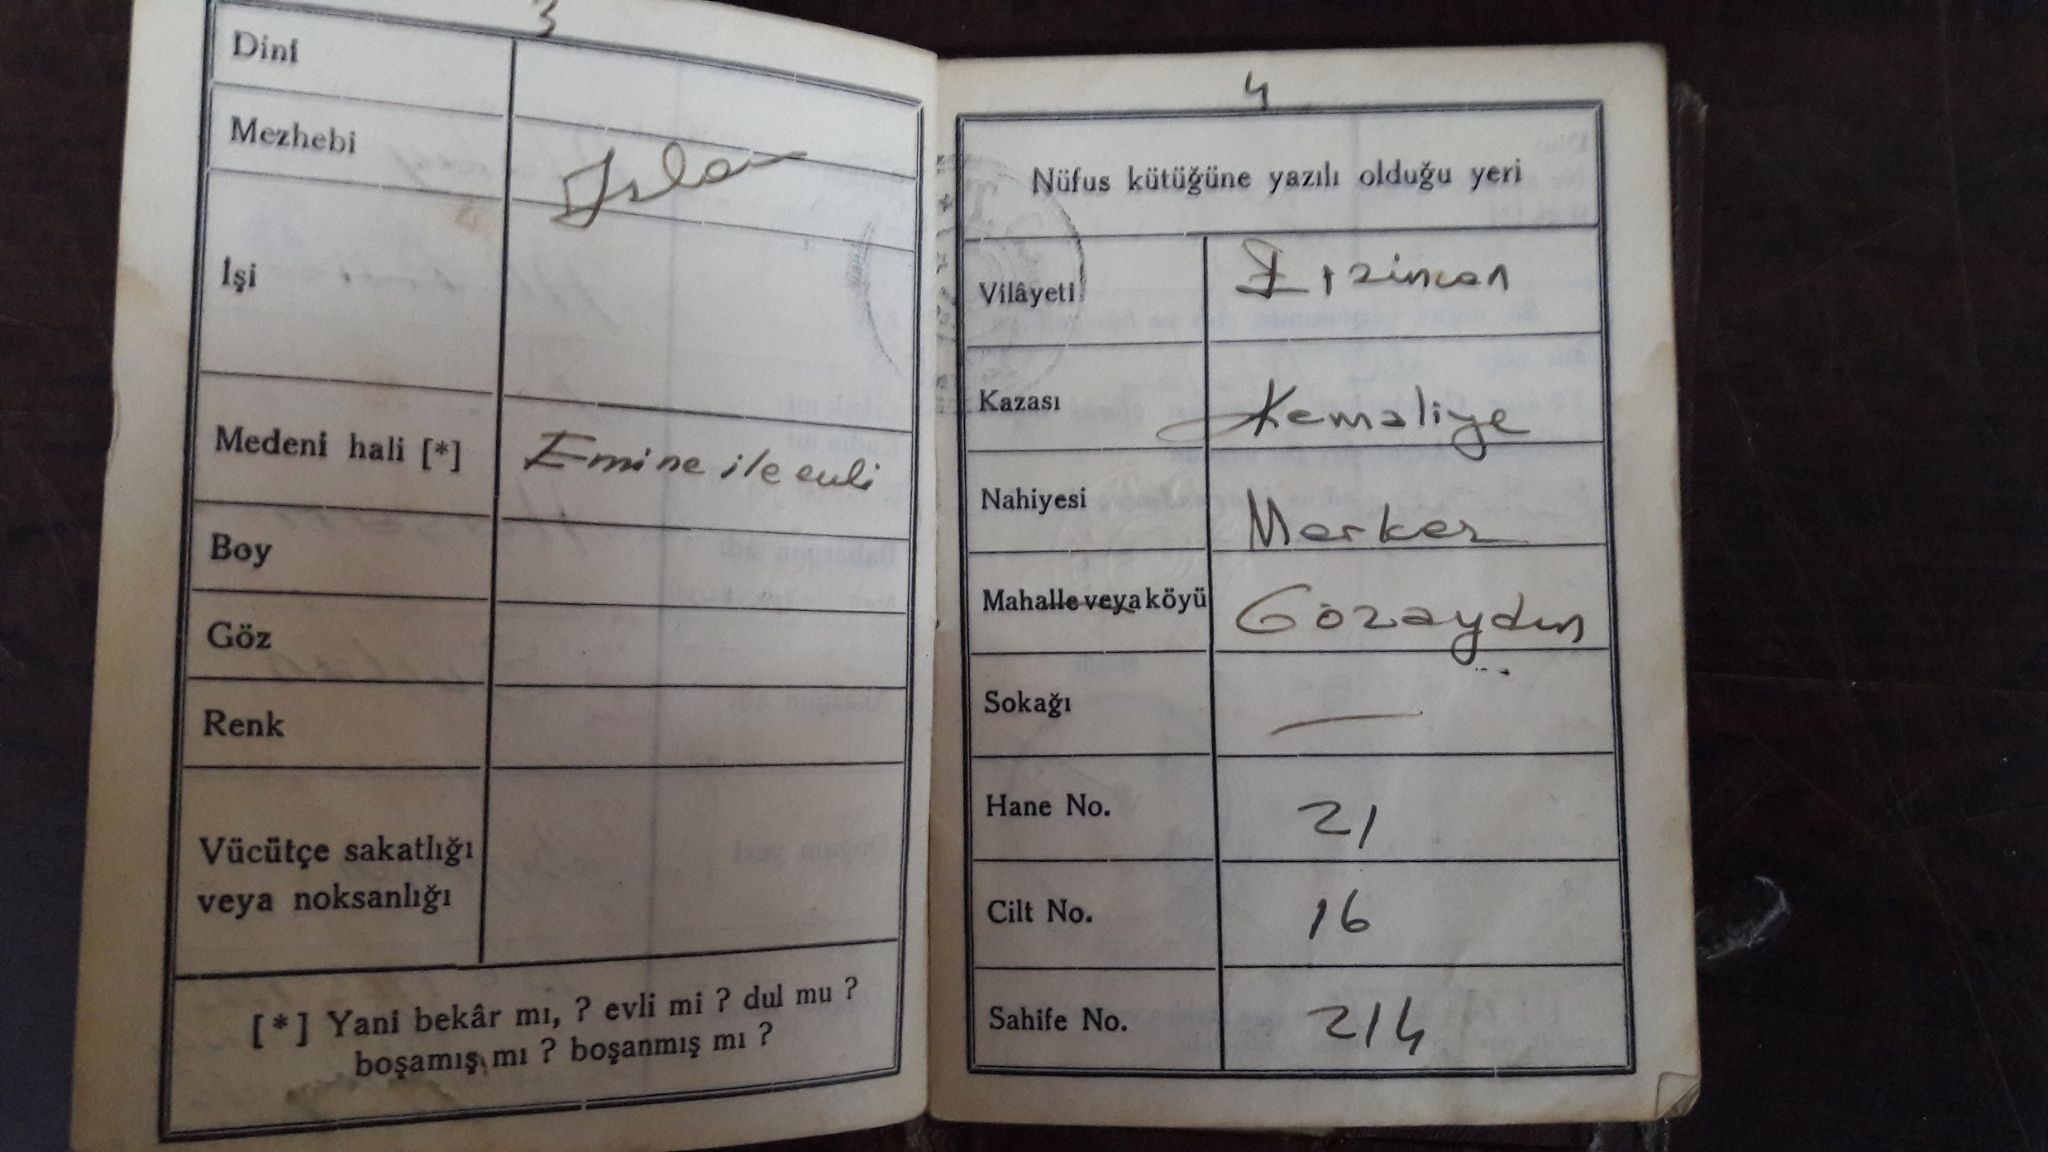 3
Dini
Mezhebi
İslam
İşi
Medeni hali [*] Emine ile evli
Boy
Göz
Renk
Vücütçe sakatlığı
veya noksanlığı
[*] Yani bekâr mı, ? evli mi ? dul mu ?
boşamış mı ? boşanmış mı ?
4
Nüfus kütüğüne yazılı olduğu yeri
Vilâyeti Erzincan
Kazası Kemaliye
Nahiyesi Merkez
Mahalle veya köyü Gözaydın
Sokağı —
Hane No. 21
Cilt No. 16
Sahife No. 214